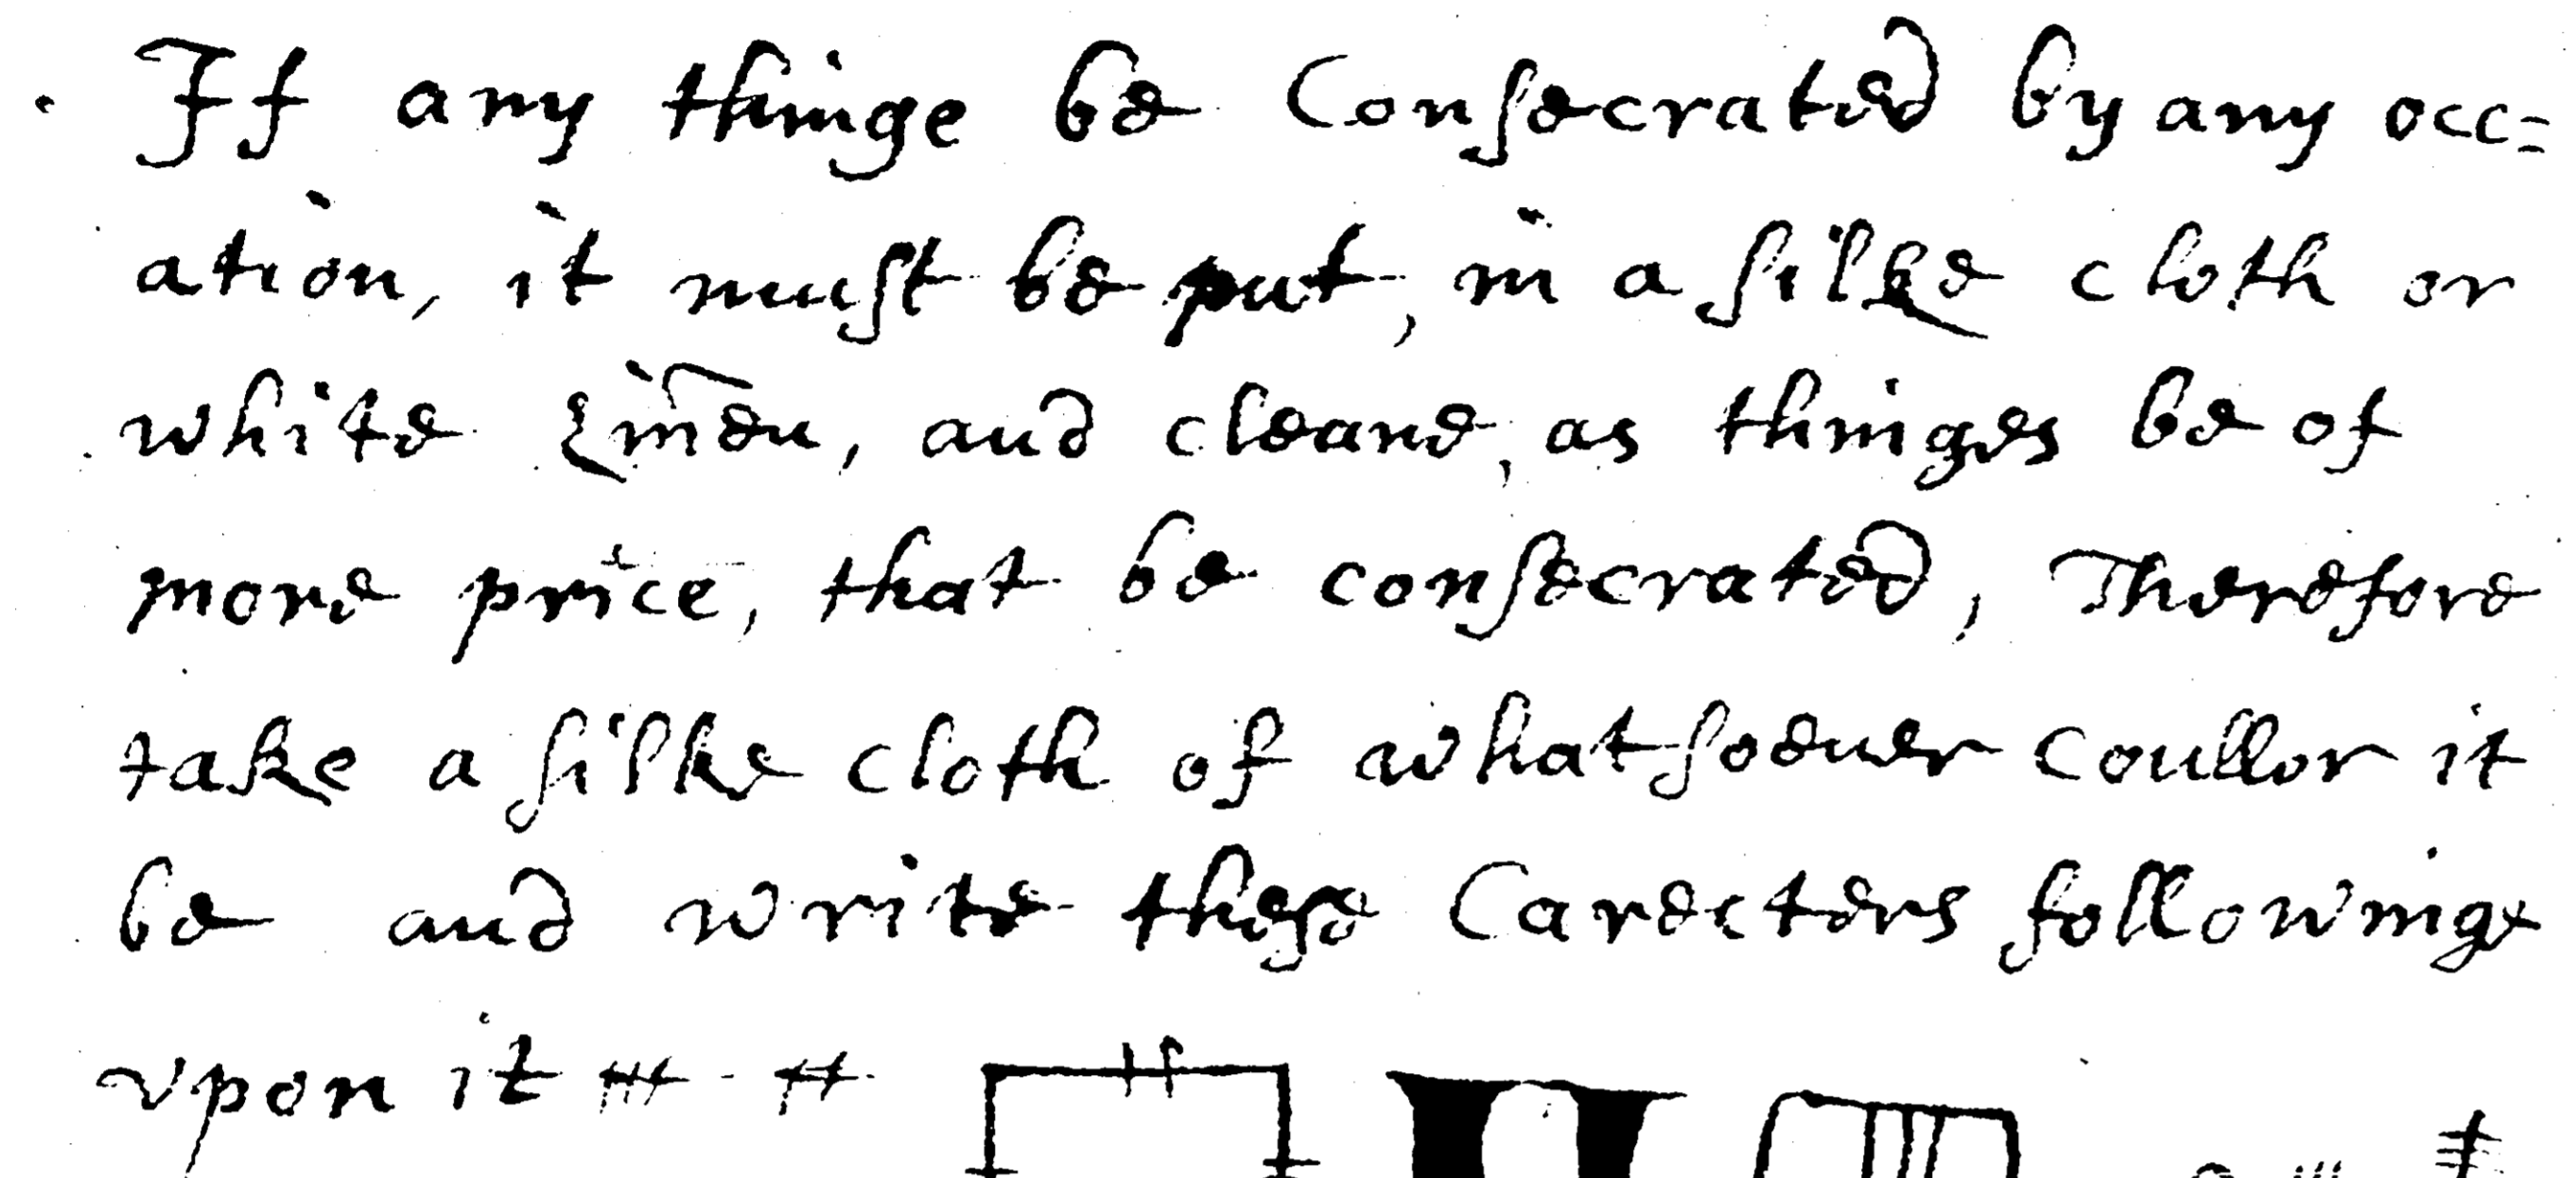 If any thinge be Conſecrated by any occ=
ation, it muſt be put, in a ſilke cloth or
white Lin̄en, and cleane, as thinges be of
more price, that be conſecrated, Therefore
take a ſilke cloth of whatſoeuer coullor it
be and write theſe Carecters followinge
vpon it